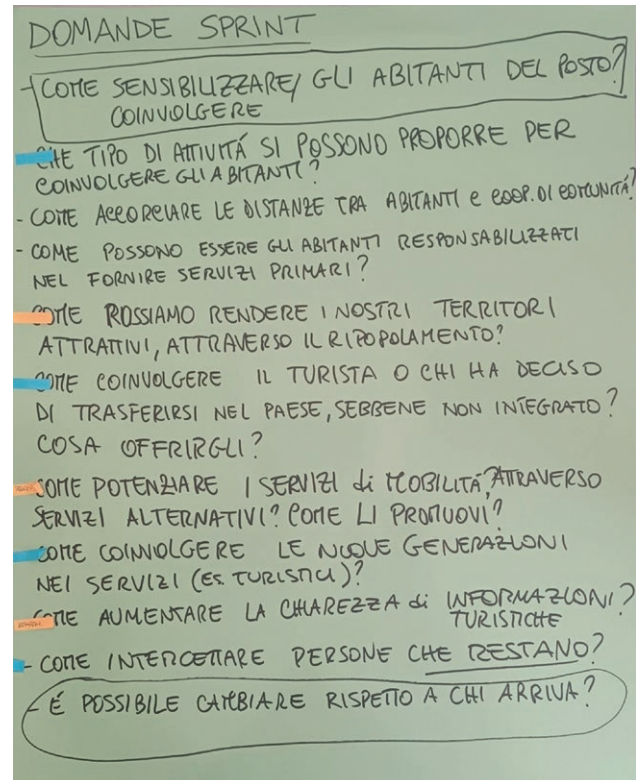 DOMANDE SPRINT
- COME SENSIBILIZZARE/ GLI ABITANTI DEL POSTO?
COINVOLGERE
CHE TIPO DI ATTIVITÁ SI POSSONO PROPORRE PER
COINVOLGERE GLI ABITANTI?
- COME ACCORCIARE LE DISTANZE TRA ABITANTI e COOP. DI COMUNITÁ?
- COME POSSONO ESSERE GLI ABITANTI RESPONSABILIZZATI
NEL FORNIRE SERVIZI PRIMARI?
COME POSSIAMO RENDERE I NOSTRI TERRITORI
ATTRATTIVI, ATTRAVERSO IL RIPOPOLAMENTO?
COME COINVOLGERE IL TURISTA O CHI HA DECISO
DI TRASFERIRSI NEL PAESE, SEBBENE NON INTEGRATO?
COSA OFFRIRGLI?
COME POTENZIARE I SERVIZI di MOBILITÁ, ATTRAVERSO
SERVIZI ALTERNATIVI? COME LI PROMUOVI?
COME COINVOLGERE LE NUOVE GENERAZIONI
NEI SERVIZI (ES. TURISTICI)?
COME AUMENTARE LA CHIAREZZA di INFORMAZIONI?
TURISTICHE
- COME INTERCETTARE PERSONE CHE RESTANO?
- É POSSIBILE CAMBIARE RISPETTO A CHI ARRIVA?